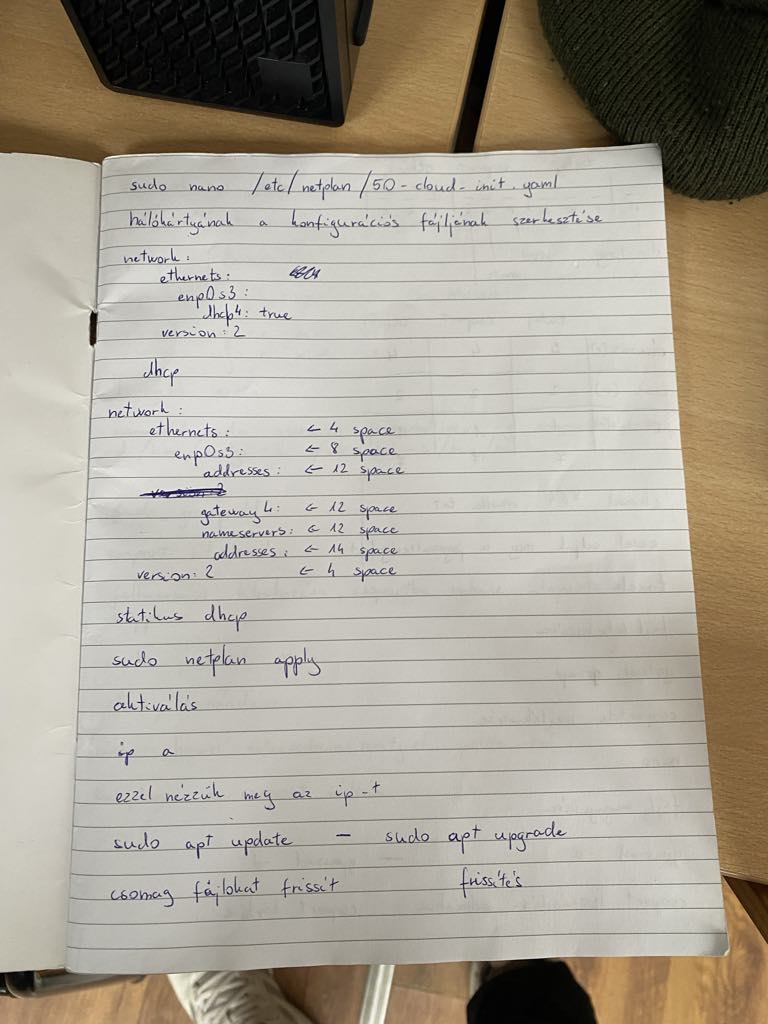 sudo nano /etc/netplan/50-cloud-init.yaml
hálókártyának a konfigurációs fájljának szerkesztése
network:
ethernets:
enp0s3:
dhcp4: true
version: 2
dhcp
network:
ethernets: ← 4 space
enp0s3: ← 8 space
addresses: ← 12 space
version: 2
gateway4: ← 12 space
nameservers: ← 12 space
addresses: ← 14 space
version: 2 ← 4 space
statikus dhcp
sudo netplan apply
aktiválás
ip a
ezzel nézzük meg az ip-t
sudo apt update - sudo apt upgrade
csomag fájlokat frissít frissítés